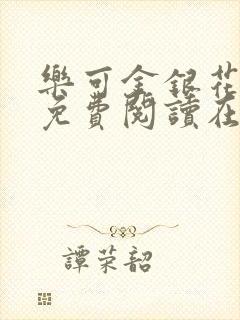 樂可金銀花
免費閱讀在
譚荣韶